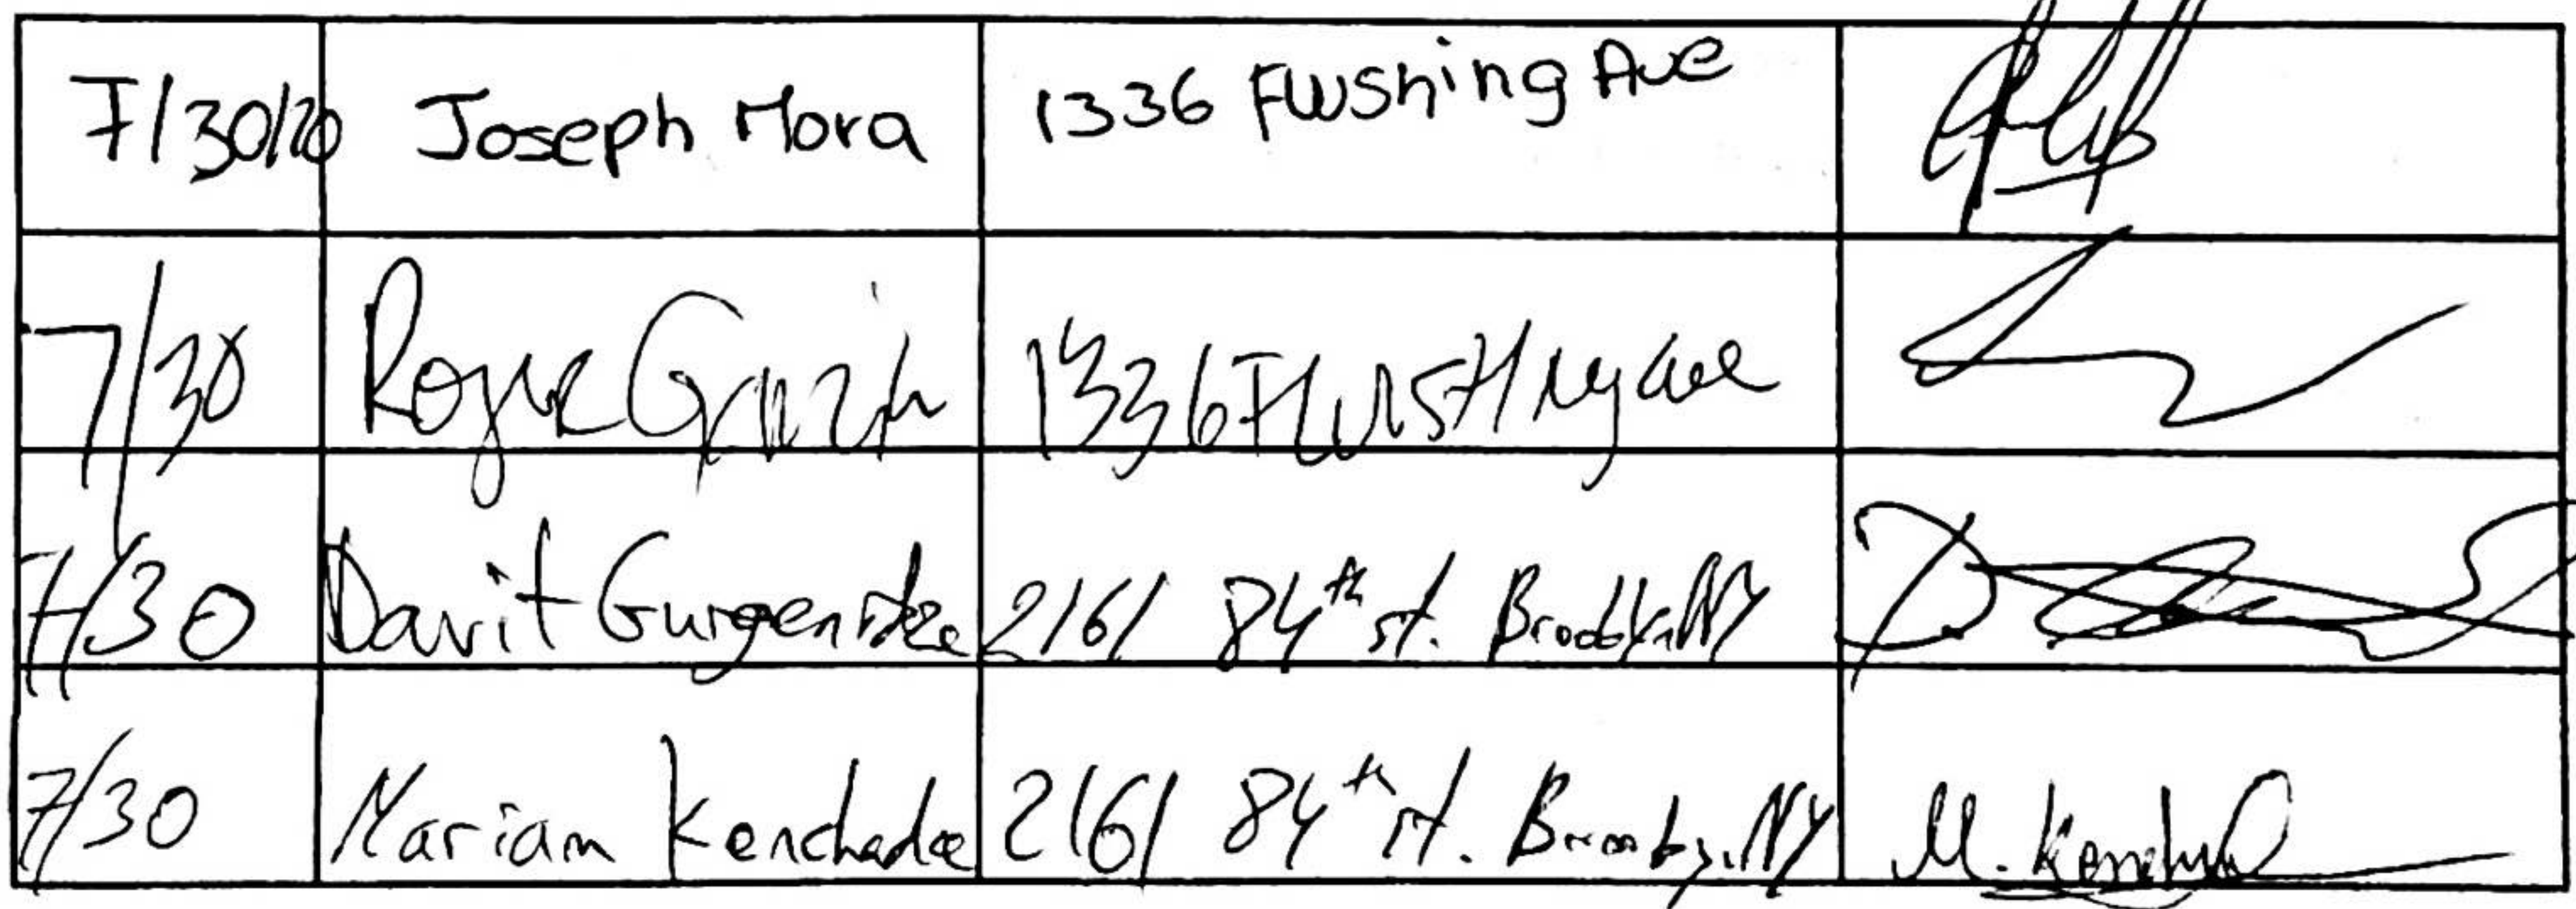 7/30/20 Joseph Mora 1336 Flushing Ave
7/30 1336 Flushing ave
7/30 Davit Gurgenidze 2161 84th st. Brooklyn NY
7/30 Mariam Kenchadze 2161 84th st. Brooklyn, NY M.